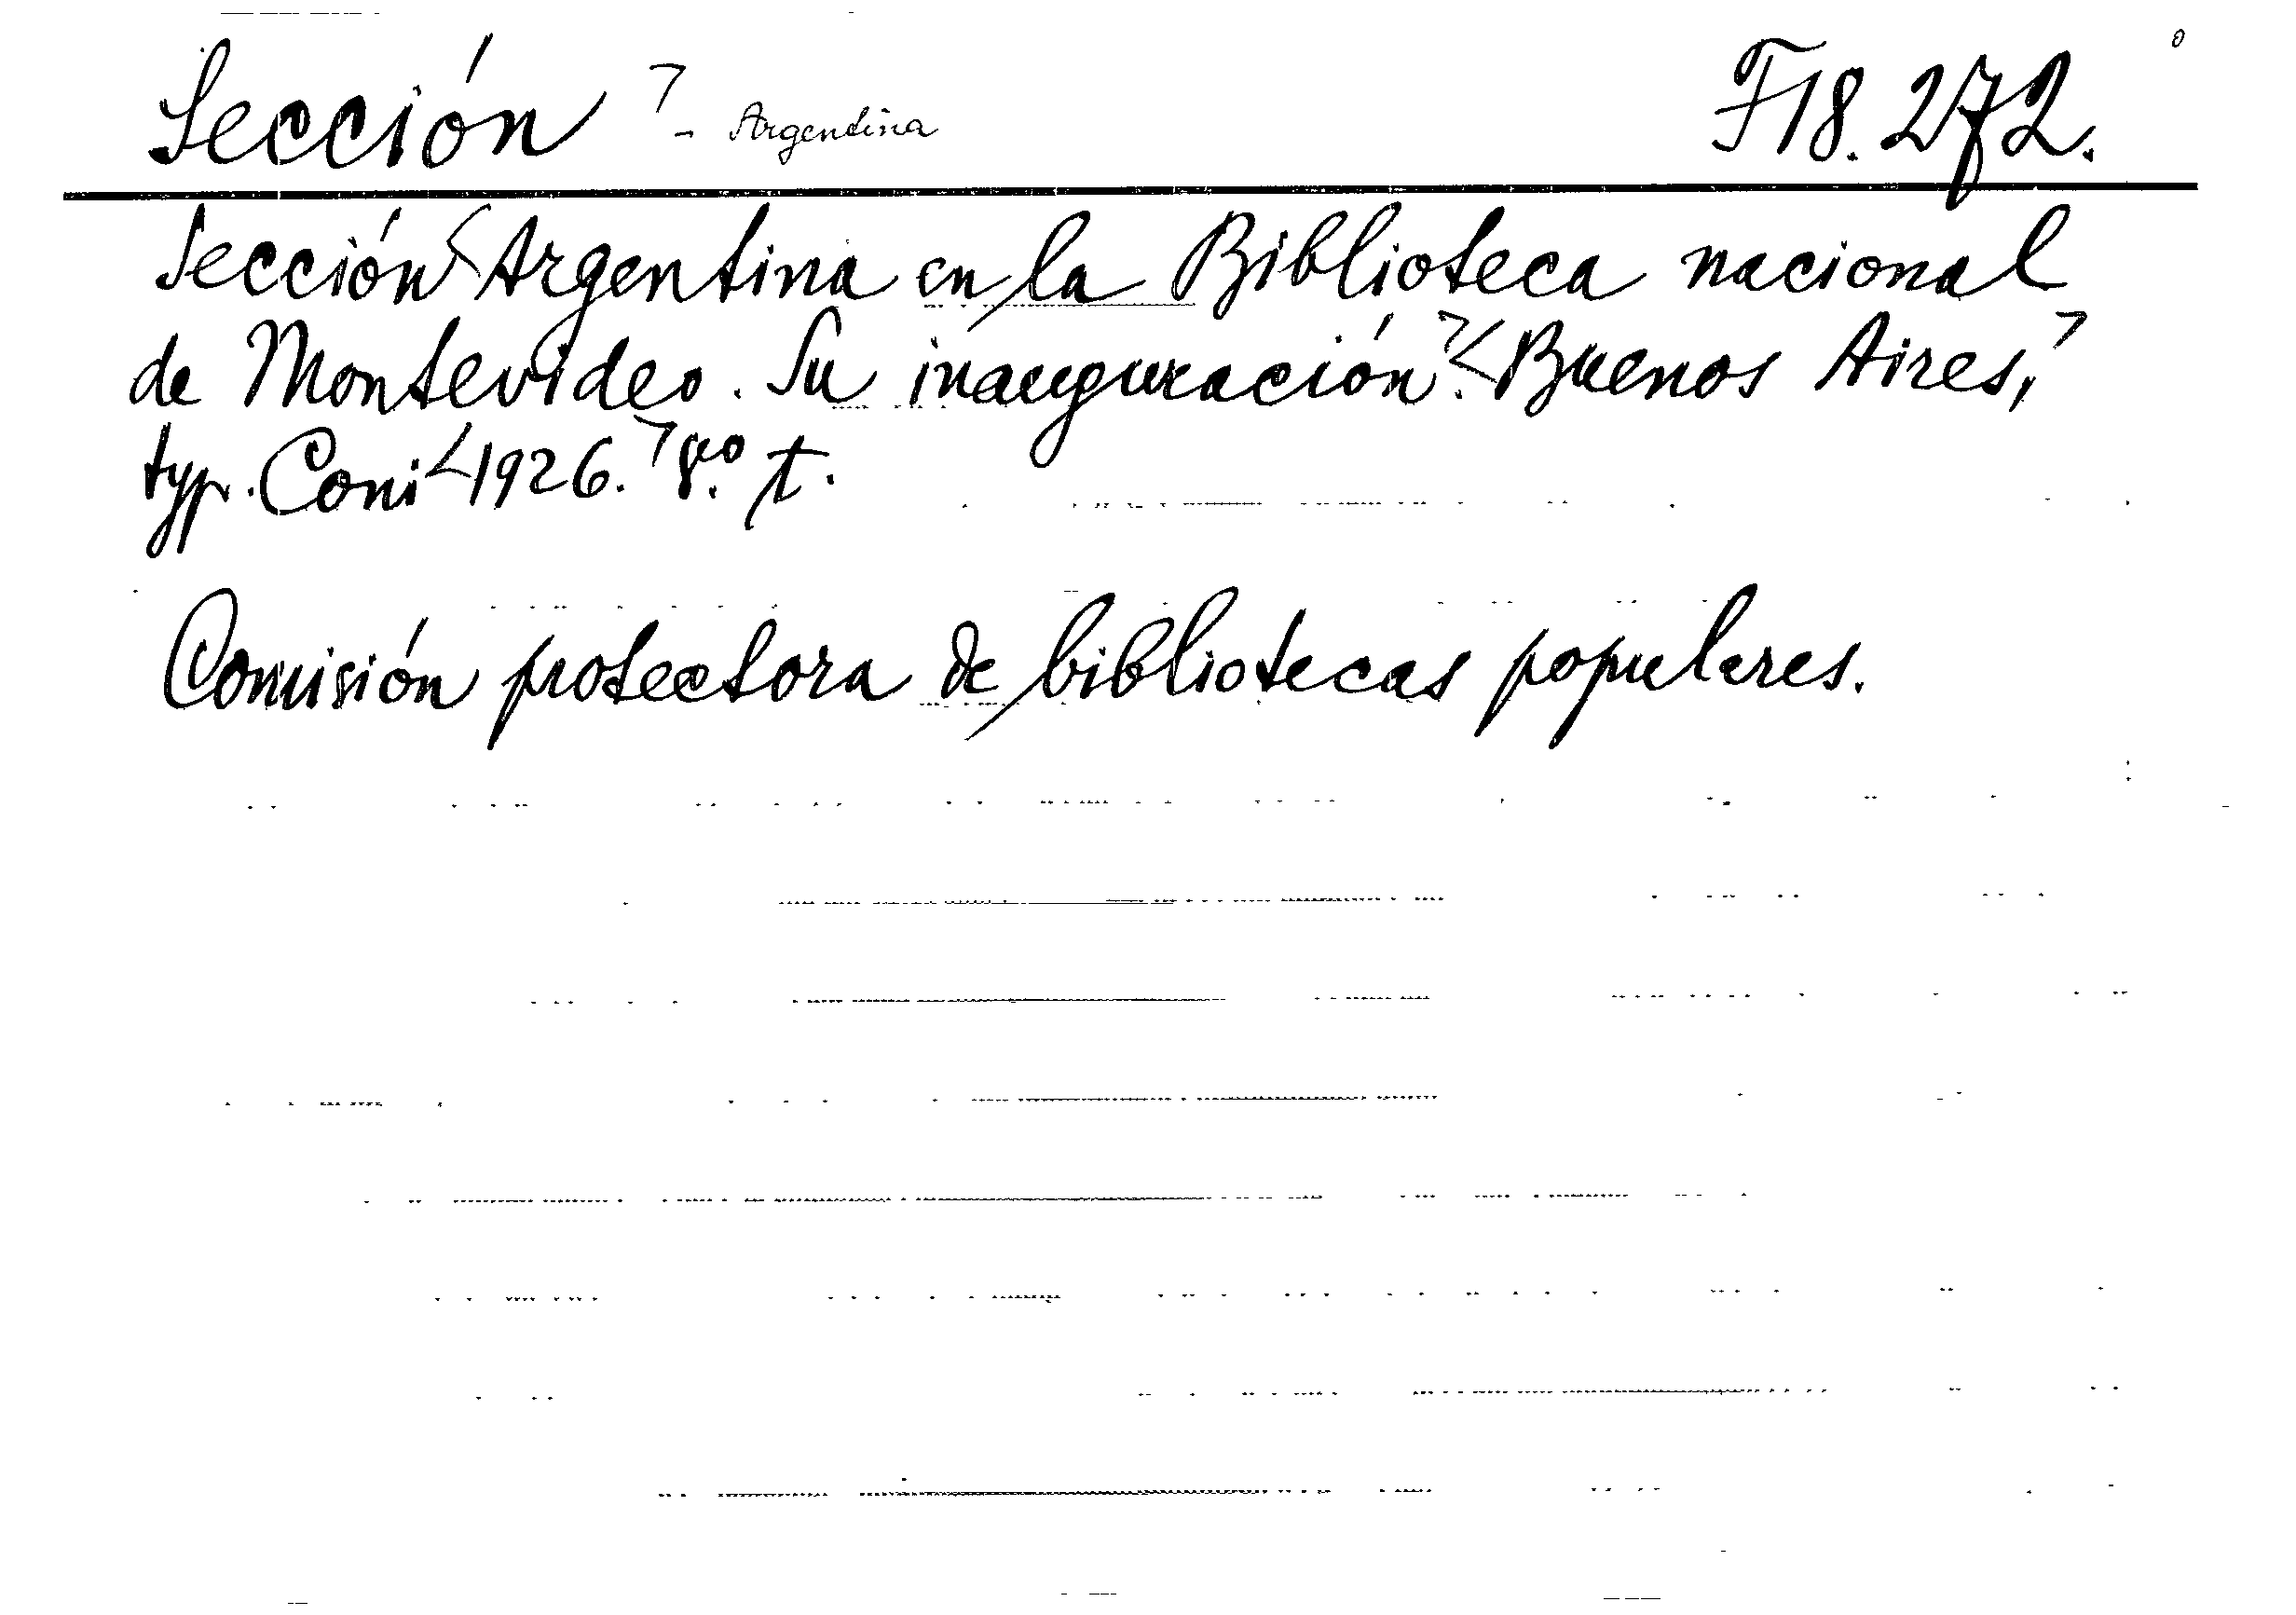 Sección - Argentina F18.272.
Sección Argentina en la Biblioteca nacional
de Montevideo. Su inauguración. Buenos Aires,
typ. Coni 1926. 8.o t.
Comisión protectora de bibliotecas populares.